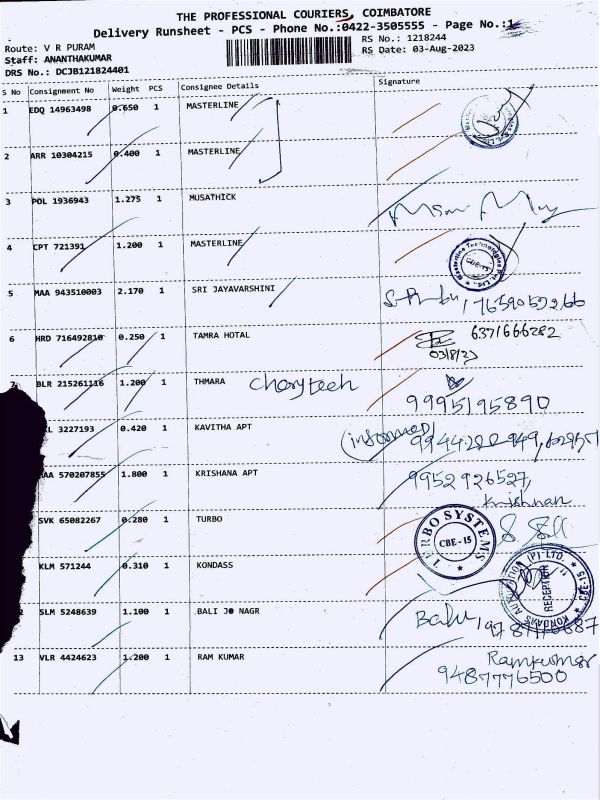 THE PROFESSIONAL COURIERS, COIMBATORE
Delivery Runsheet - PCS - Phone No.:0422-3505555 - Page No.:1
Route: V R PURAM
RS No.: 1218244
Staff: ANANTHAKUMAR
RS Date: 03-Aug-2023
DRS No.: DCJB121824401
S No Consignment No Weight PCS Consignee Details Signature
1 EDQ 14963498 0.650 1 MASTERLINE
2 ARR 10304215 0.400 1 MASTERLINE
3 POL 1936943 1.275 1 MUSATHICK
4 CPT 721391 1.200 1 MASTERLINE
Masterline Technologies Pvt. Ltd. CBE-15
5 MAA 943510003 2.170 1 SRI JAYAVARSHINI
6 HRD 716492810 0.250 1 TAMRA HOTAL 6371666282
03/8/23
7 BLR 215261116 1.200 1 THMARA
9995195890
3227193 0.420 1 KAVITHA APT (informed)
AA 570207855 1.800 1 KRISHANA APT 9952926527,
Krishnan
SVK 65082267 0.280 1 TURBO TURBO SYSTEMS CBE-15
KLM 571244 0.310 1 KONDASS
RECEPTION
2 SLM 5248639 1.100 1 BALI NAGR
13 VLR 4424623 1.200 1 RAM KUMAR Ramkumar
9487776500